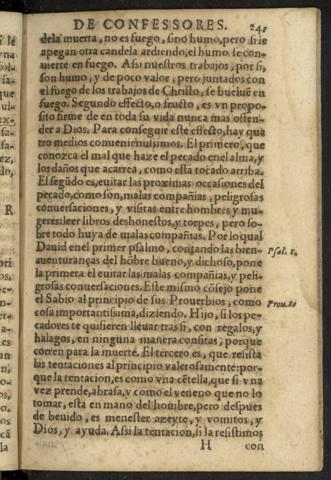 DE CONFESSORES. 245
dela muerta, no es fuego, sino humo, pero si le
apegan otra candela ardiendo, el humo se con-
uierte en fuego. Assi nuestros trabajos, por si,
son humo, y de poco valor, pero juntados con
el fuego de los trabajos de Christo, se bueluē en
fuego. Segundo effecto, o fructo, es vn propo-
sito firme de en toda su vida nunca mas offen-
der a Dios. Para conseguir este effecto, hay qua
tro medios conuenientissimos. El primero, que
conozca el mal que haze el pecado en el alma, y
los daños que acarrea, como esta tocado arriba.
El segūdo es, euitar las proximas occasiones del
pecado, como son, malas compañias, peligrosas
conuersaciones, y visitas entre hombres y mu-
geres: leer libros deshonestos, y torpes, pero so-
bre todo huya de malas compañias. Por lo qual
Dauid en el primer psalmo, contando las bien-
auenturanças del hōbre bueno, y dichoso, pone Psal. 1.
la primera el euitar las malas compañias, y peli-
grosas conuersaciones. Este mismo cōsejo pone
el Sabio al principio de sus Prouerbios, como Prou. 1.
cosa importantissima, diziendo. Hijo, si los pe-
cadores te quisieren lleuar tras si, con regalos, y
halagos, en ninguna manera consitas, porque
corren para la muerte. El tercero es, que resista
las tentaciones al principio valerosamente: por-
que la tentacion, es como vna cētella, que si vna
vez prende, abrasa, y como el veneno que no lo
tomar, esta en mano del hombre, pero despues
de beuido, es menester azeyte, y vomitos, y
Dios, y ayuda. Assi la tentacion, si la resistimos
H con